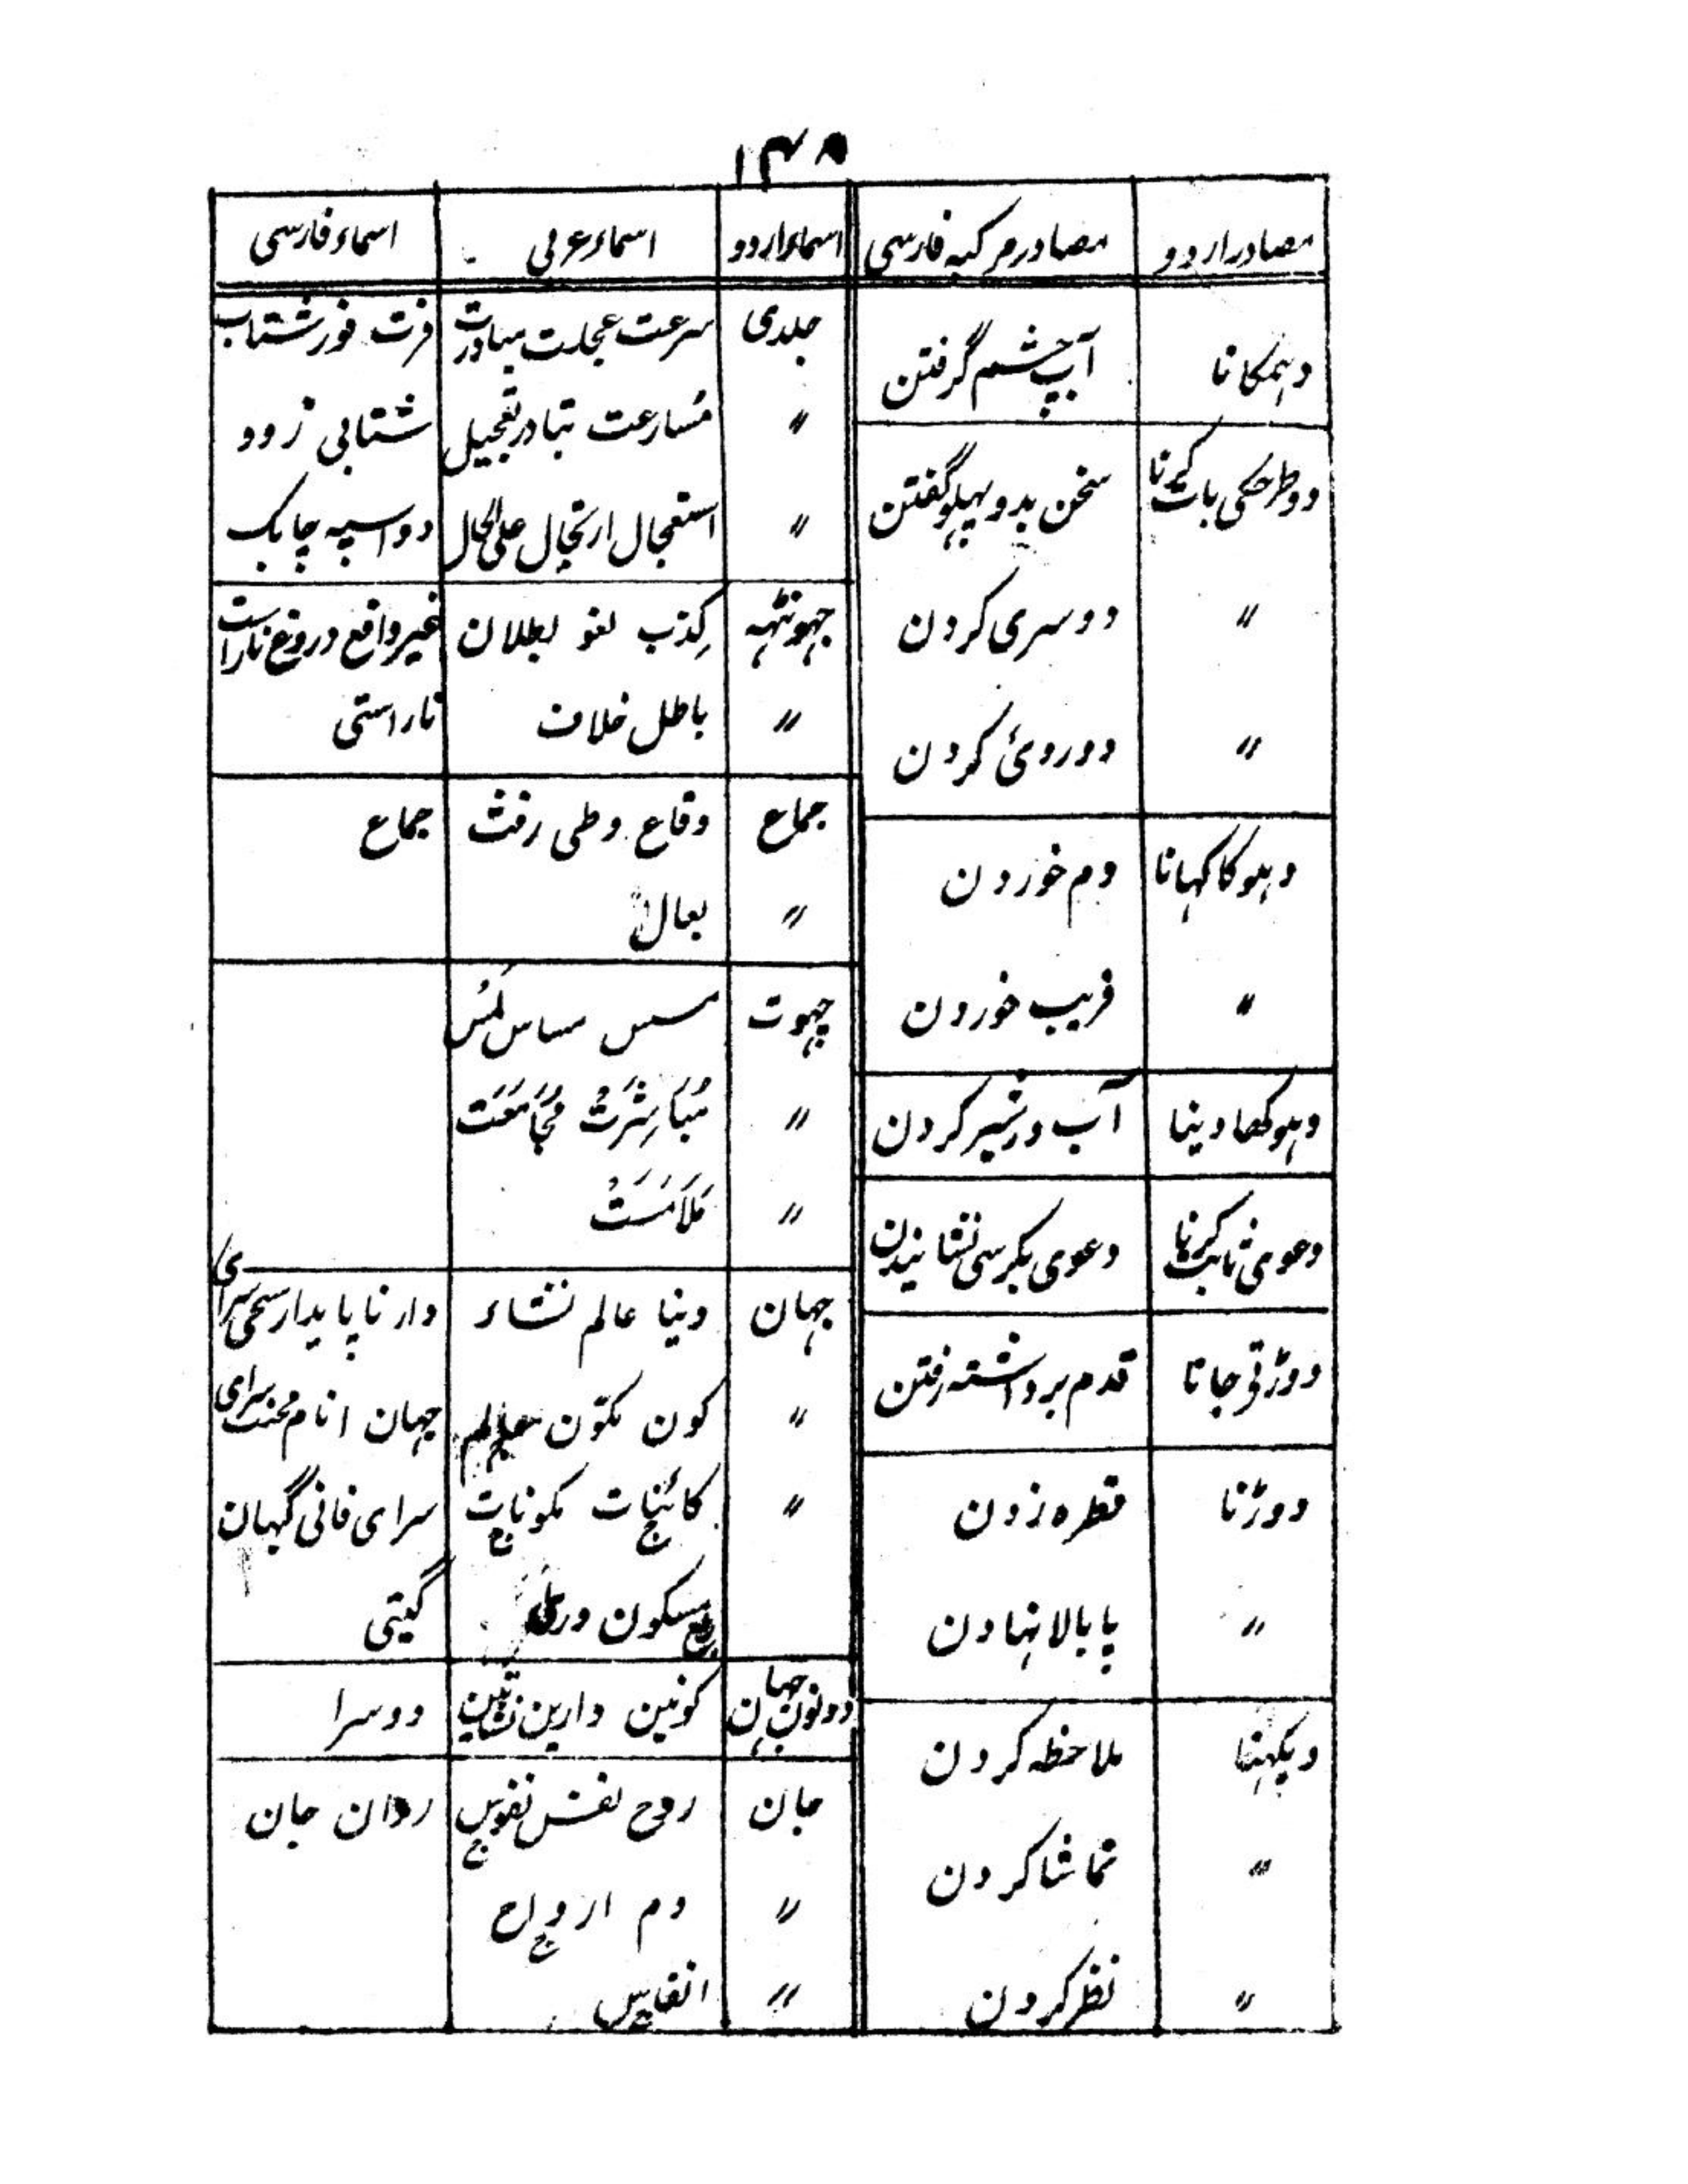 ۱۴۸
مصادر اردو | مصادر مرکبه فارسی | اسماء اردو | اسماء عربی | اسماء فارسی
دہمکانا | آب چشم گرفتن
دو طرحکی بات کرنا | سخن بدو پہلو گفتن
〃 | دوسری کردن
〃 | دوروئ کردن
دہوکا کہانا | دم خوردن
〃 | فریب خوردن
دہوکھا دینا | آب در شیر کردن
دعوی ثابت کرنا | دعوی بکرسی نشانیدن
دوڑتی جانا | قدم برداشته رفتن
دوڑنا | قطره زدن
〃 | پا بالا نهادن
دیکہنا | ملاحظه کردن
〃 | تماشا کردن
〃 | نظر کردن
جلدی | سرعت عجلت مبادرت | فرت فور شتاب
〃 | مُسارعت تبادر تعجیل | شتابی زود
〃 | استعجال ارتجال علی الحال | دواسپه چابک
جہونٹہه | کِذب لغو بطلان | غیر واقع دروغ ناراست
〃 | باطل خلاف | ناراستی
جماع | وقاع وطی رفث | جماع
〃 | بعال
چہوت | مسس مساس لَمس
〃 | مُبَاشِرَتْ مُجَامَعَت
〃 | مُلَامَسَتْ
جہان | دنیا عالم نشاء | دار ناپایدار سرای
〃 | کون تکوّن | جہان انام محنت سرای
〃 | کائنات مکونات | سرای فانی گیہان
ربع مسکون | گیتی
دونون جہان | کونین دارین نشاتین | دوسرا
جان | روح نفس نفوس | روان جان
〃 | دم ارواح
〃 | انفاس